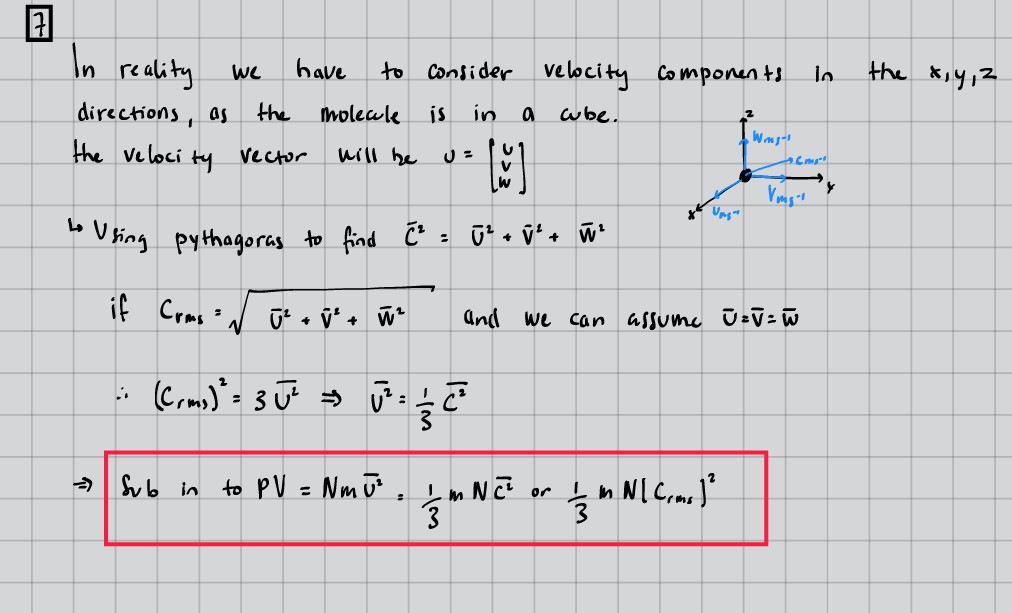 7
In reality we have to consider velocity components in the x,y,z
directions, as the molecule is in a cube.
the velocity vector will be U = [U V W]
z
Wms⁻¹
Cms⁻¹
Y
Vms⁻¹
X
Ums⁻¹
↳ Using pythagoras to find C̄² = Ū² + V̄² + W̄²
if Crms = √(Ū² + V̄² + W̄²) and we can assume Ū = V̄ = W̄
∴ (Crms)² = 3Ū² ⇒ Ū² = 1/3 C̄²
⇒ Sub in to PV = NmŪ² = 1/3 mNC̄² or 1/3 mN[Crms]²